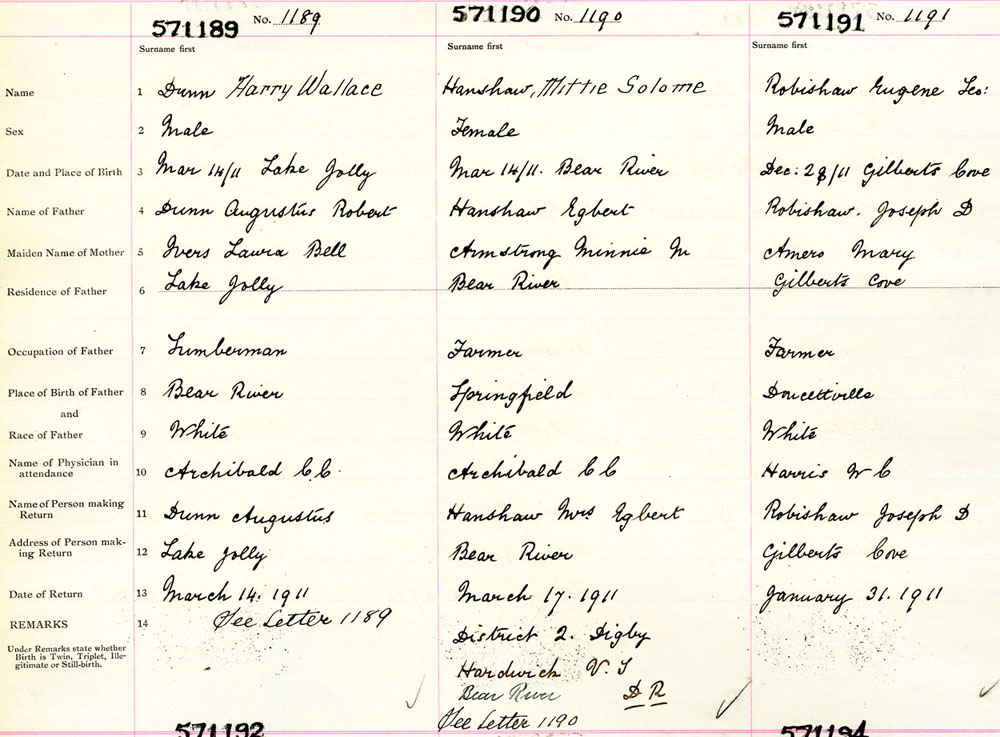 571189 No. 1189 571190 No. 1190 571191 No. 1191
Surname first Surname first Surname first
Name 1 Dunn Harry Wallace Hanshaw, Mittie Solome Robishaw Eugene Leo:
Sex 2 Male Female Male
Date and Place of Birth 3 Mar 14/11 Lake Jolly Mar 14/11. Bear River Dec: 28/11 Gilberts Cove
Name of Father 4 Dunn Augustus Robert Hanshaw Egbert Robishaw. Joseph D
Maiden Name of Mother 5 Ivers Laura Bell Armstrong Minnie M Amero Mary
Residence of Father 6 Lake Jolly Bear River Gilberts Cove
Occupation of Father 7 Lumberman Farmer Farmer
Place of Birth of Father 8 Bear River Springfield Doucettville
and
Race of Father 9 White White White
Name of Physician in
attendance 10 Archibald C.C. Archibald C C Harris W C
Name of Person making
Return 11 Dunn Augustus Hanshaw Mrs Egbert Robishaw Joseph D
Address of Person mak-
ing Return 12 Lake Jolly Bear River Gilberts Cove
Date of Return 13 March 14. 1911 March 17. 1911 January 31. 1911
REMARKS 14 See Letter 1189
District 2. Digby
Under Remarks state whether
Birth is Twin, Triplet, Ille-
gitimate or Still-birth.
Hardwick V. S
Bear River D R
See Letter 1190
571192 571194